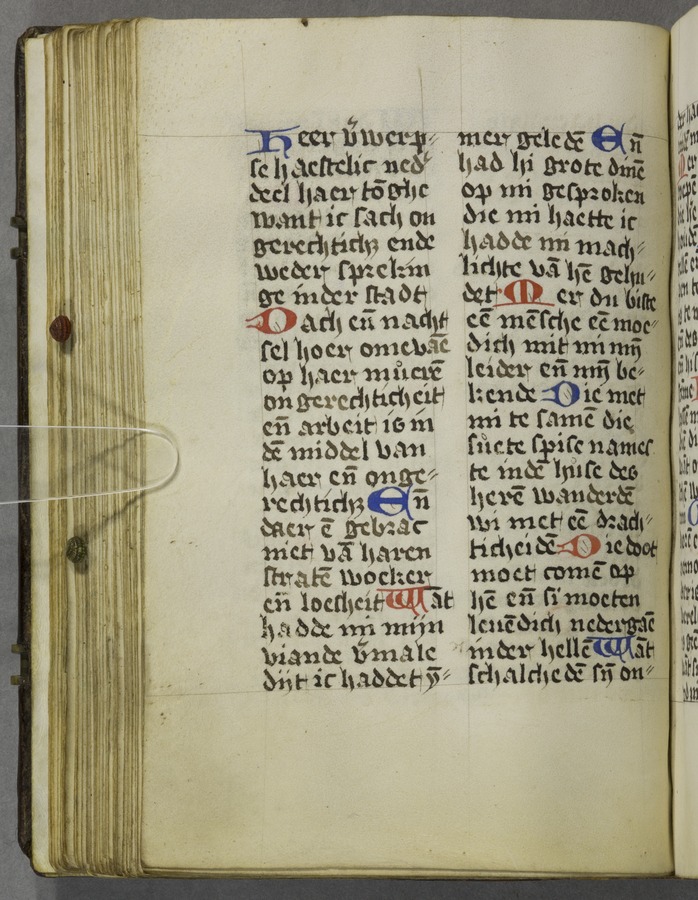 Heer v̄werp⸗
se haestelic ned̕
deel haer tōghe
want ic sach on
gerechtichz ende
weder sprekin
ge in der stadt
Dach en̄ nacht
sel hoer omevaē
op haer mūerē
ongerechticheit
en̄ arbeit is in
dē middel van
haer en̄ onge⸗
rechtichz En̄
daer ē gebrac
niet vā haren
stratē wocker
en̄ loesheit Wāt
hadde mi mijn
viande v̄male
dijt ic haddet v̄⸗
mer geledē En̄
had hi grote dinē
op mi gesproken
die mi haette ic
hadde mi mach⸗
lichte vā hē gehu⸗
det Mer du biste
eē mēsche eē moe⸗
dich mit mi mijn
leider en̄ mijn be⸗
kende Die met
mi te samē die
suete spise names
te indē huse des
herē wanderdē
wi met eē drach⸗
ticheidē Die doot
moet comē op
hē en̄ si moeten
leuēdich nedergaē
in der hellē Wāt
schalchedē sijn on⸗